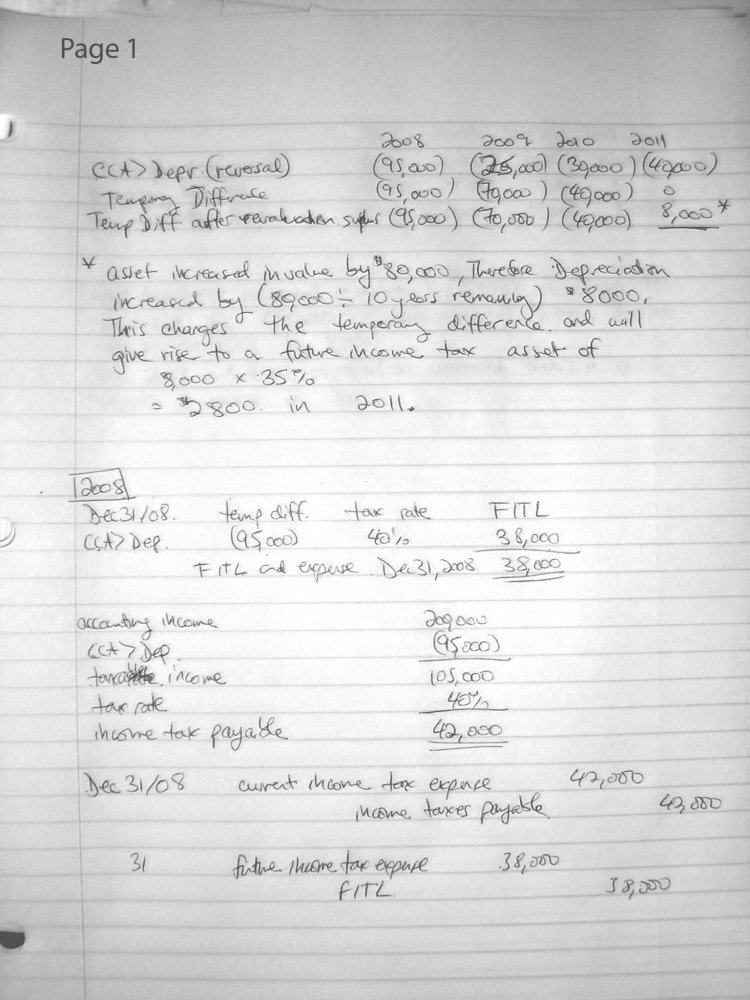 Page 1
2008 2009 2010 2011
CCA> Depr (reversal) (95,000) (25,000) (30,000) (40,000)
Temporary Difference (95,000) (70,000) (40,000) 0
Temp Diff after revaluation surplus (95,000) (70,000) (40,000) 8,000 *
* asset increased in value by $80,000, Therefore Depreciation
increased by (80,000 ÷ 10 years remaining) $8000.
This changes the temporary difference and will
give rise to a future income tax asset of
8,000 x 35%
= $2800. in 2011.
2008
Dec 31/08. temp diff. tax rate FITL
CCA> Dep. (95,000) 40% 38,000
FITL and expense Dec 31, 2008 38,000
accounting income 200,000
CCA > Dep. (95,000)
taxable income 105,000
tax rate 40%
income tax payable 42,000
Dec 31/08 current income tax expense 42,000
income taxes payable 42,000
31 future income tax expense 38,000
FITL 38,000